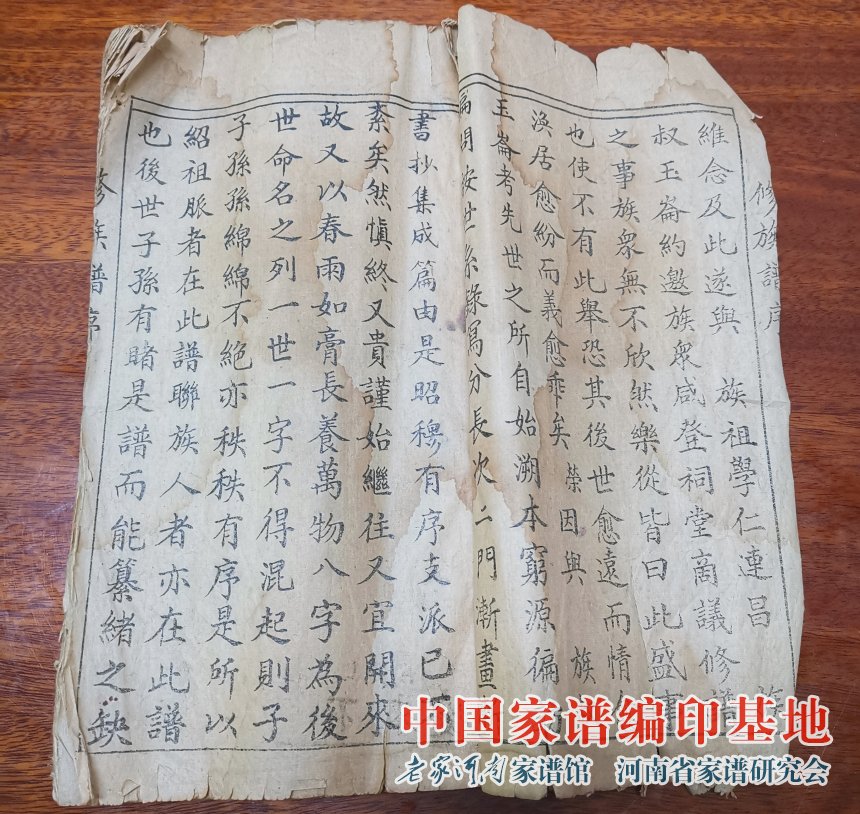 修族譜序
維念及此遂與 族祖學仁連昌 族
叔玉崙約邀族衆咸登祠堂商議修譜
之事族衆無不欣然樂從皆曰此盛事
也使不有此舉恐其後世愈遠而情
渙居愈紛而義愈乖矣榮因與 族
玉崙考先世之所自始溯本窮源徧
按世系錄為分長次二門漸畫
書抄集成篇由是昭穆有序支派已
紊矣然愼終又貴謹始繼往又宜開來
故又以春雨如膏長養萬物八字為後
世命名之列一世一字不得混起則子
子孫孫綿綿不絕亦秩秩有序是所以
紹祖脈者在此譜聯族人者亦在此譜
也後世子孫有睹是譜而能纂緒之缺
修族譜序
中国家谱编印基地
老家河南家谱馆 河南省家谱研究会